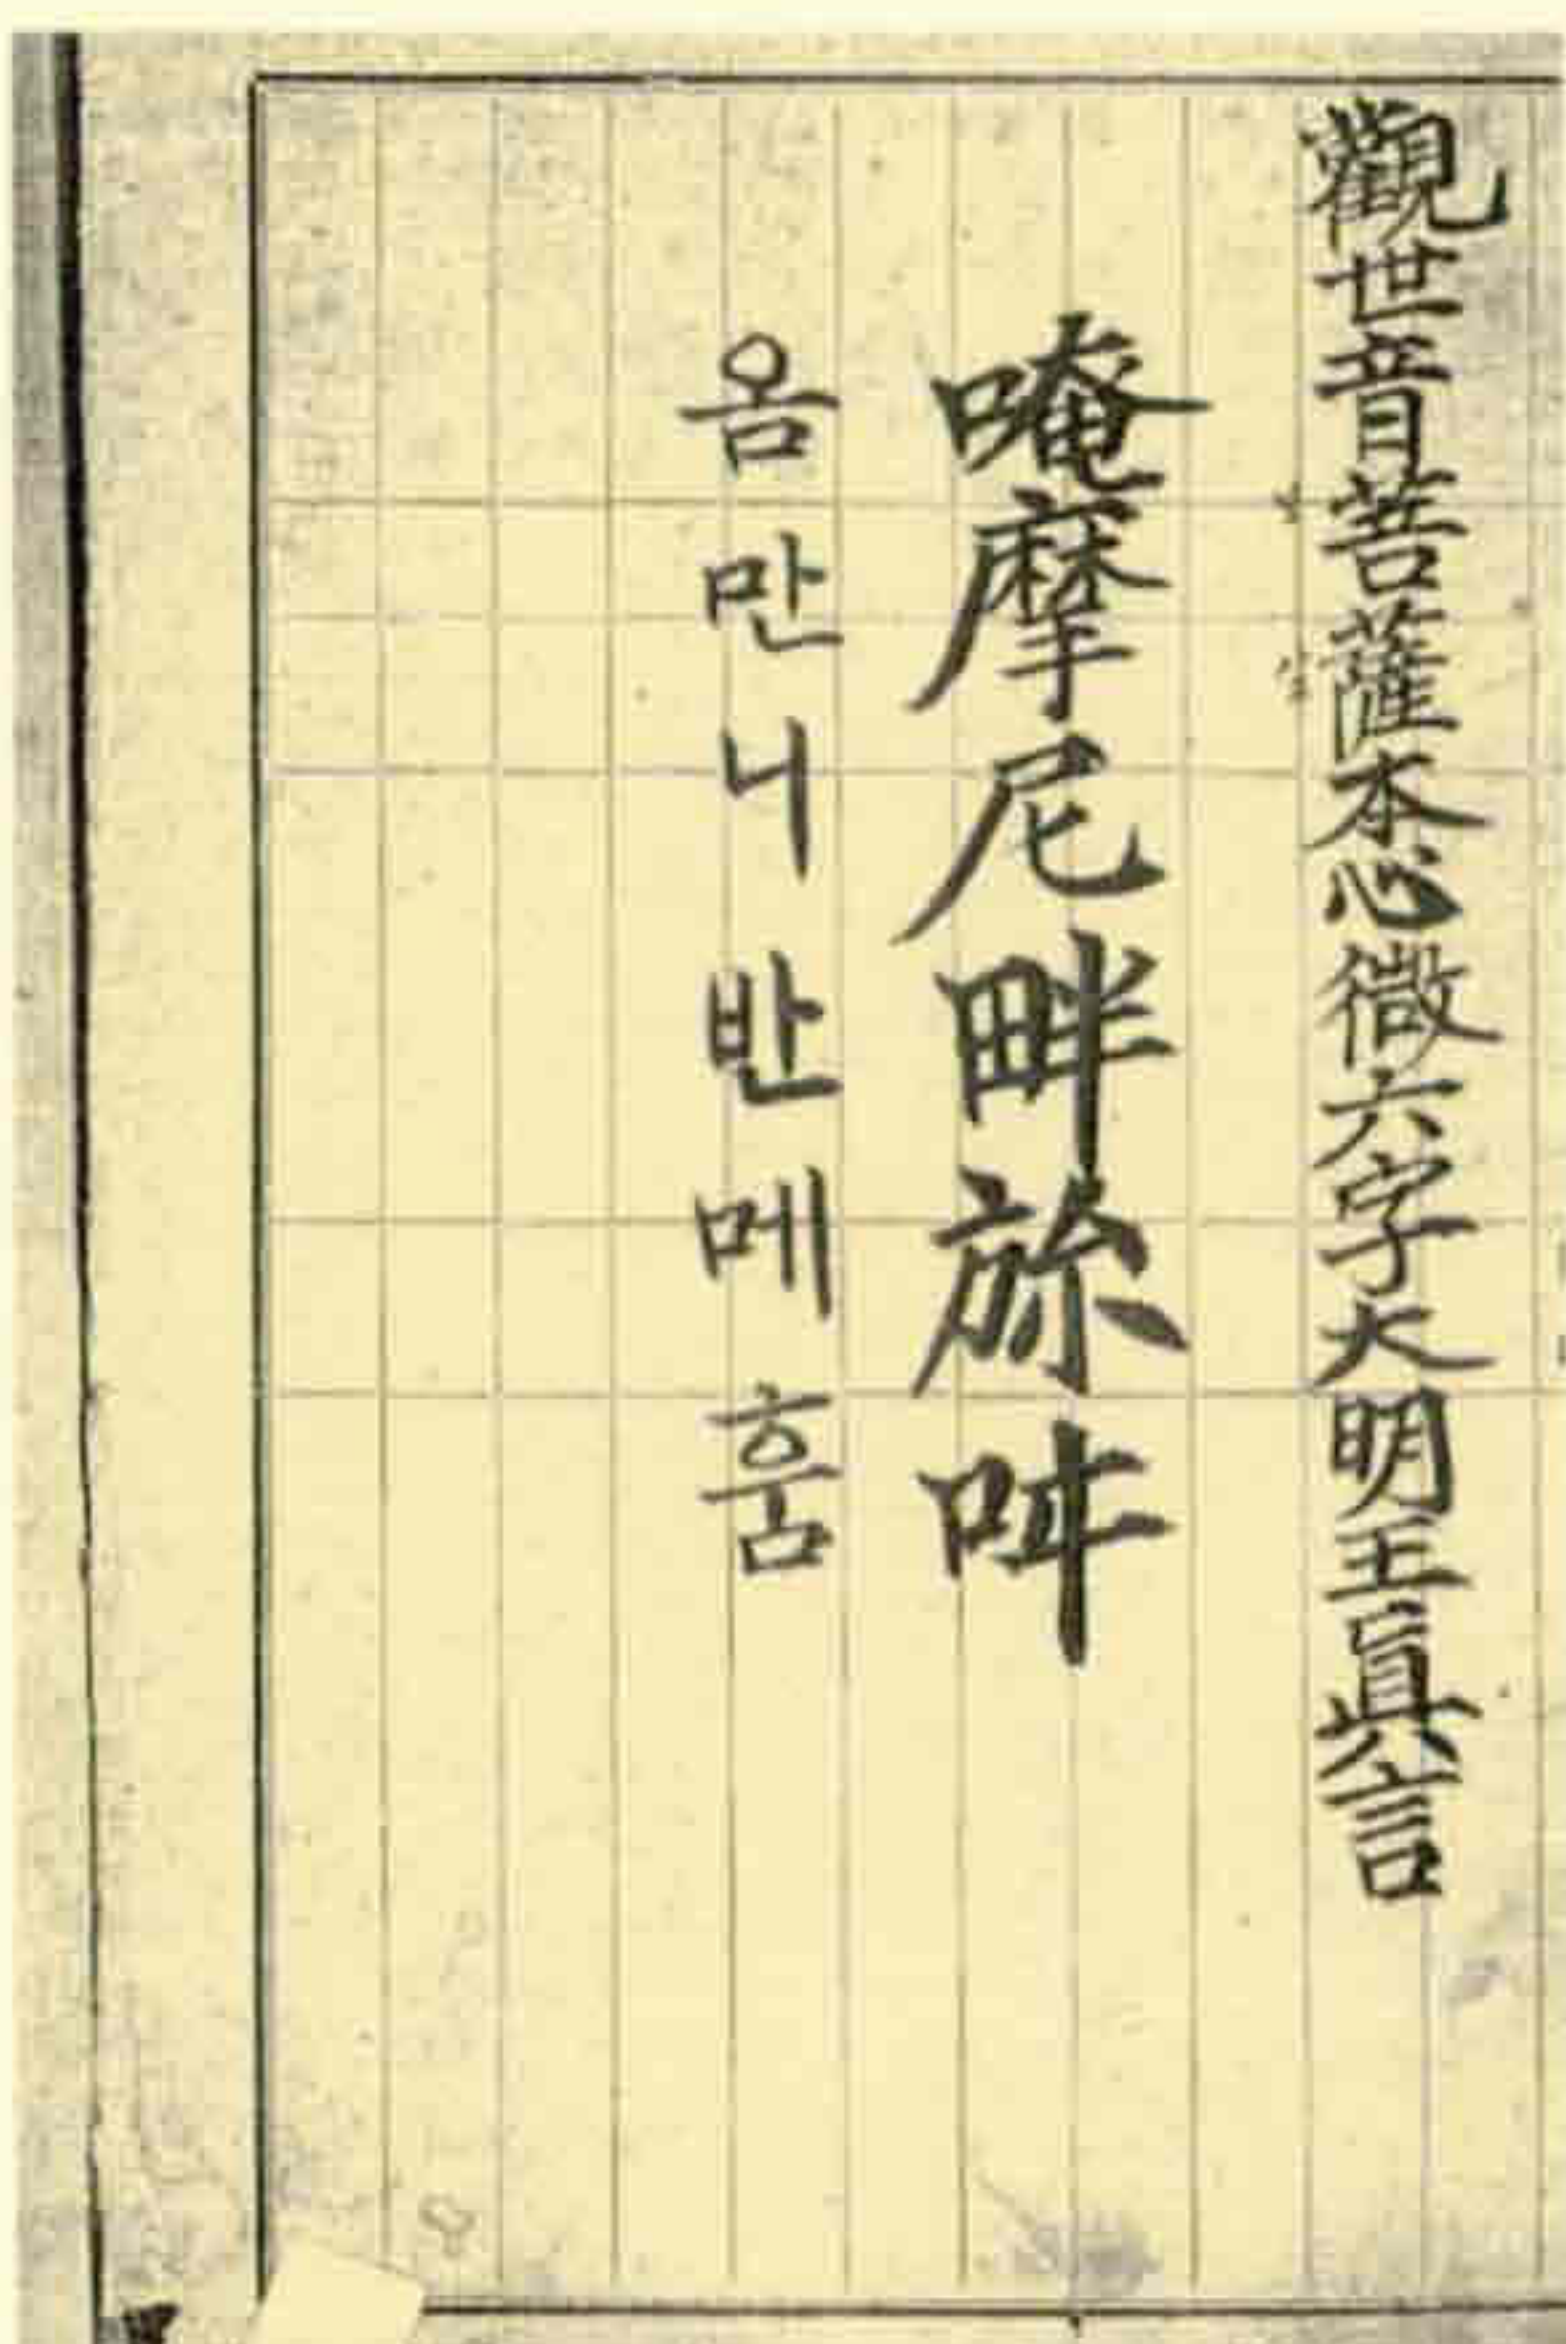 觀世音菩薩本心微六字大明王眞言
唵摩尼畔旀吽
옴만니반메훔